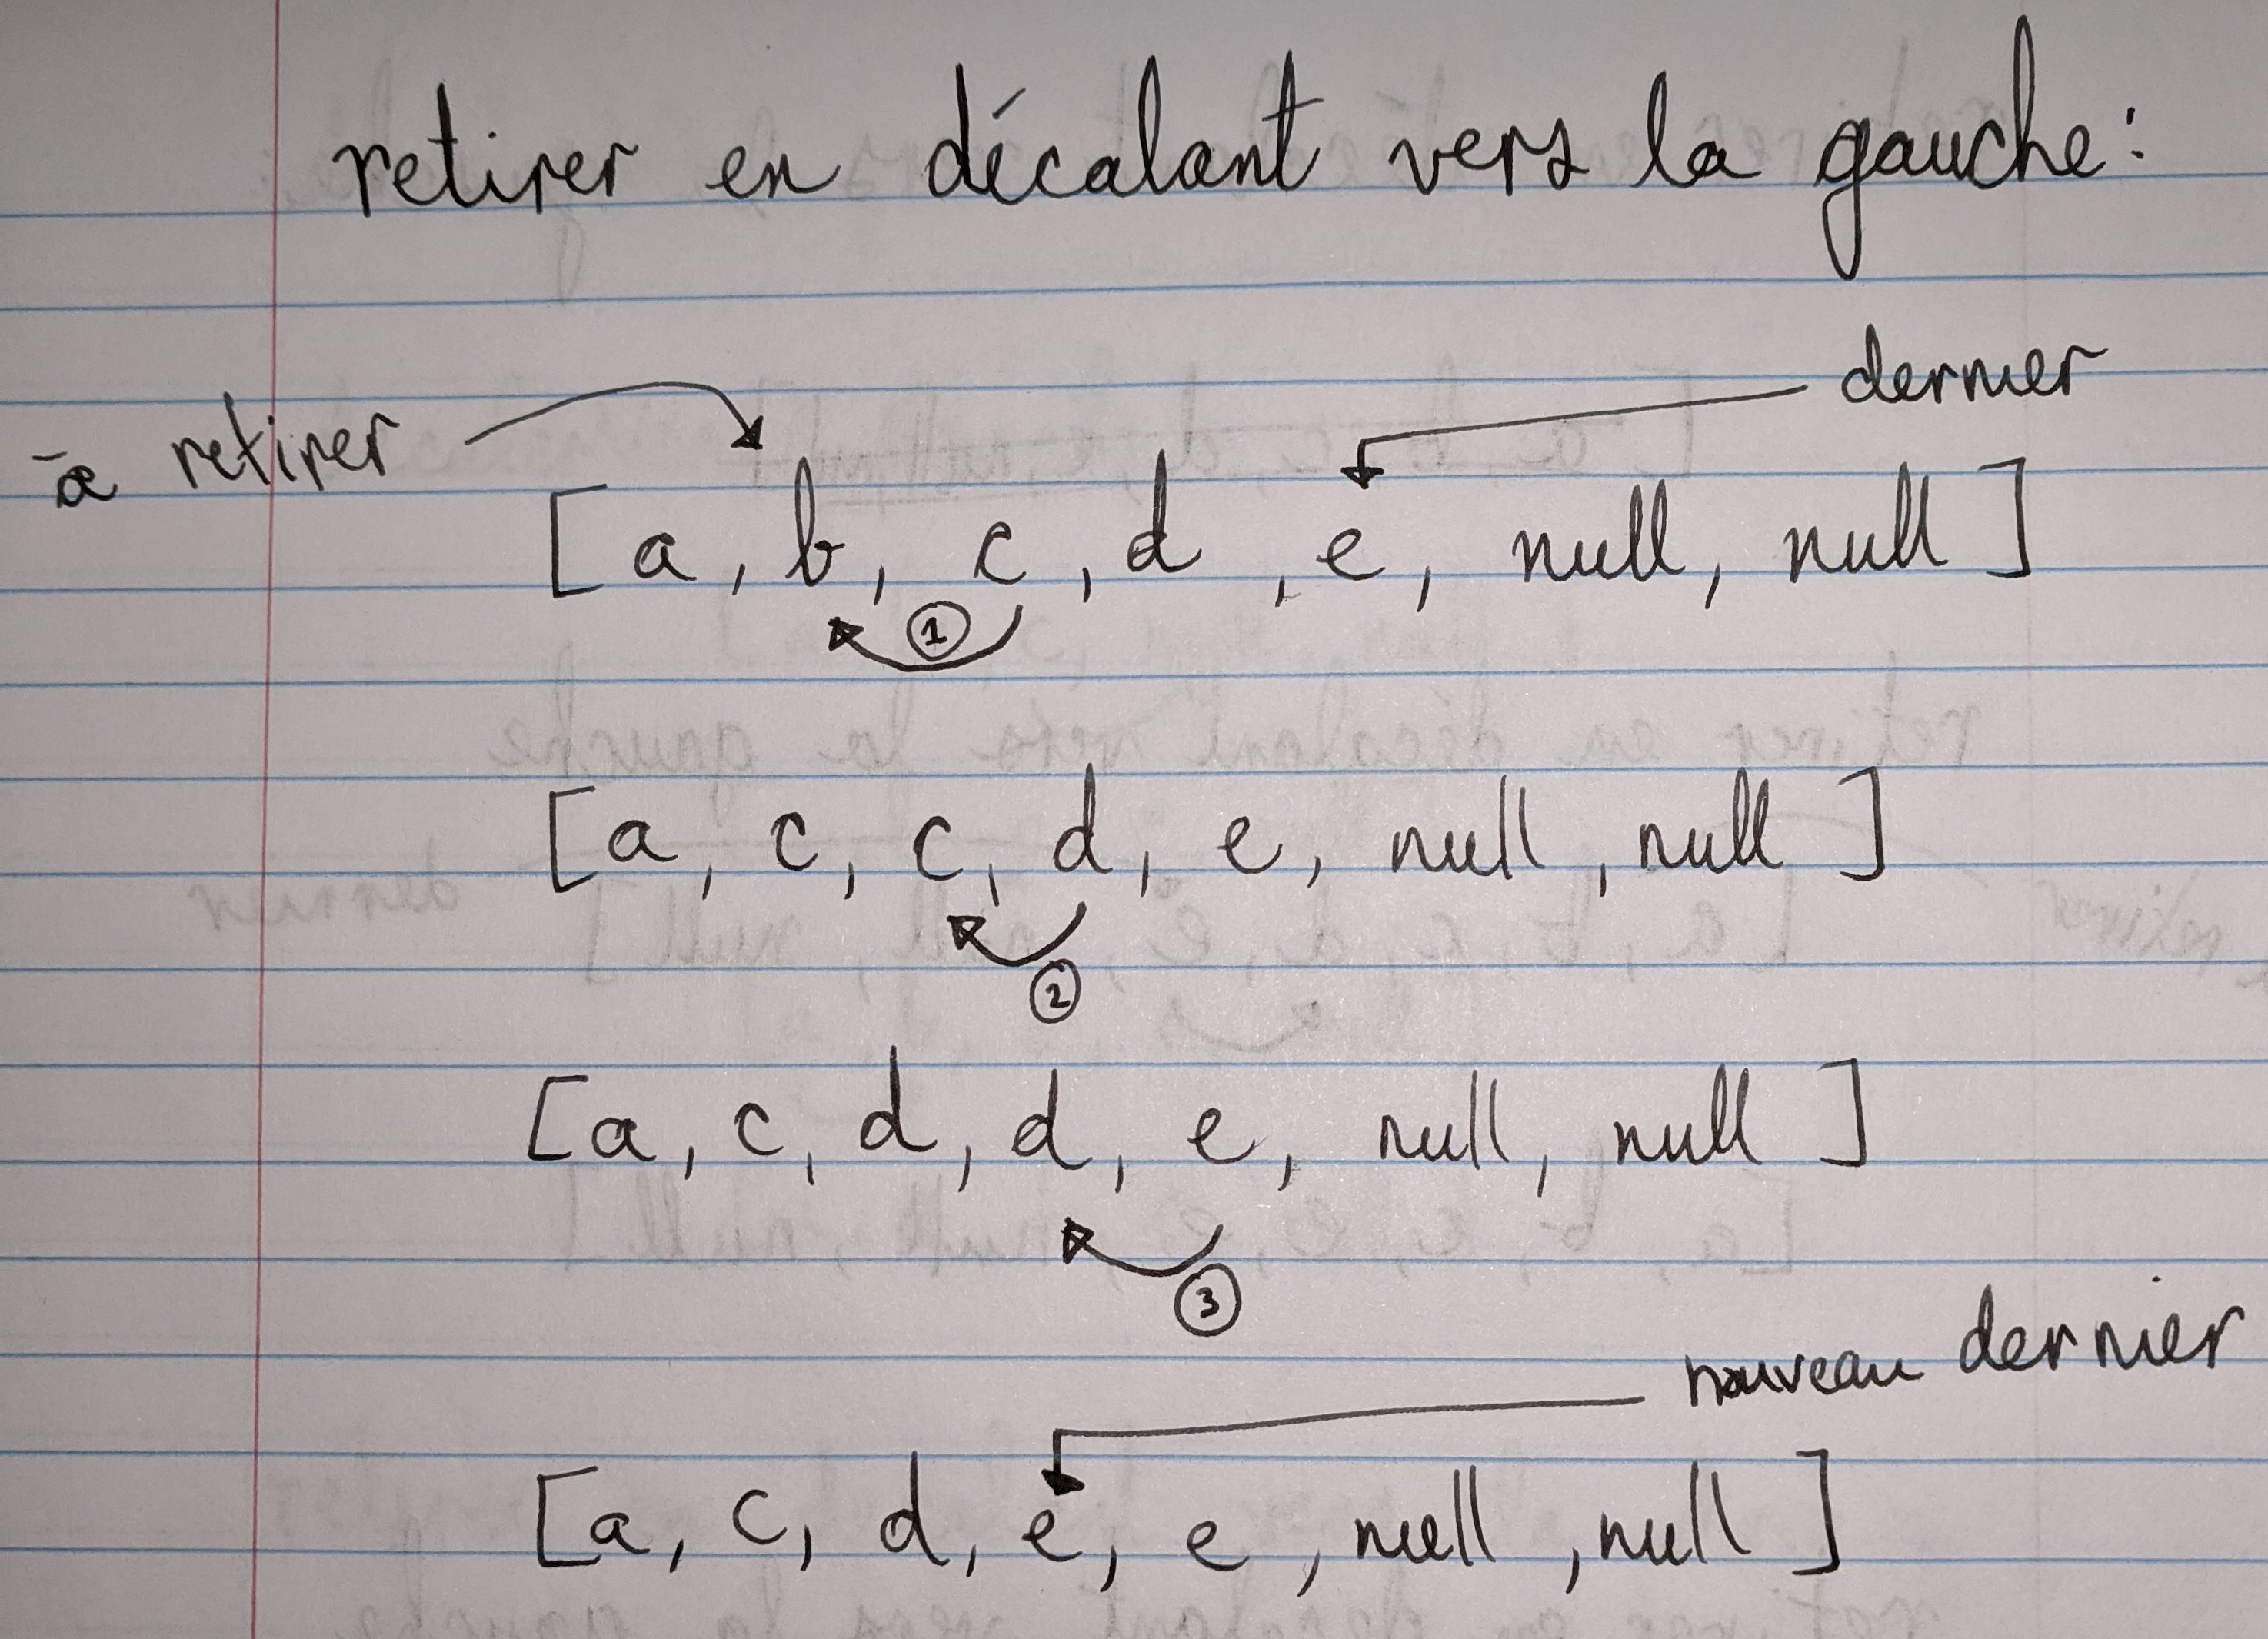 retirer en décalant vers la gauche:
dernier
à retirer
[a, b, c, d, e, null, null]
1
[a, c, c, d, e, null, null]
2
[a, c, d, d, e, null, null]
3
nouveau dernier
[a, c, d, e, e, null, null]